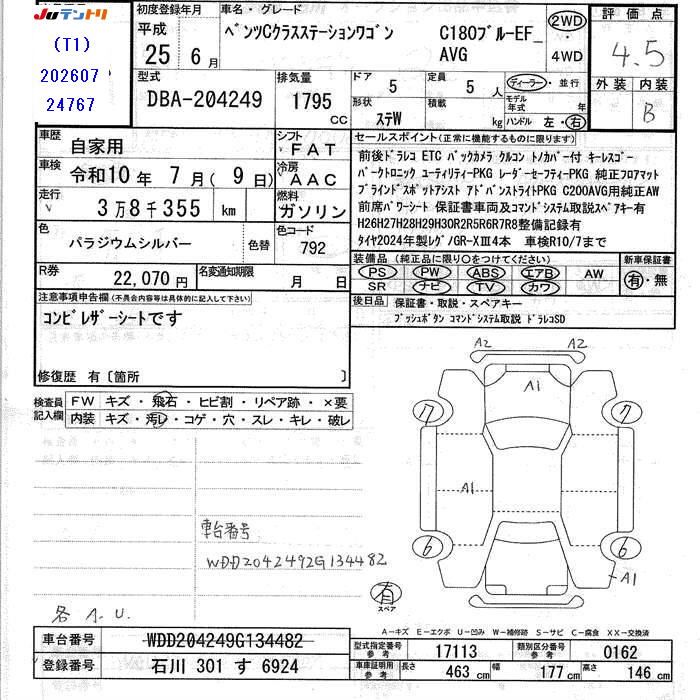 JUテントリ
(T1)
202607
24767
初度登録年月
平成
25 6月
車名・グレード
ベンツCクラスステーションワゴン C180ブルーEF_
AVG
2WD
4WD
評価点
4.5
外装 内装
B
型式
DBA-204249
排気量
1795 CC
ドア 5
形状 ステW
定員 5 人
積載 kg
ディーラー・並行
モデル年式 年
ハンドル 左・右
車歴 自家用
シフト FAT
車検 令和10年 7月( 9日)
冷房 AAC
走行 3万8千355 km
燃料 ガソリン
色 パラジウムシルバー 色替
色コード 792
R券 22,070円
名変通知期限 月 日
セールスポイント(正常に機能するものに限ります)
前後ドラレコ ETC バックカメラ クルコン トノカバー付 キーレスゴー
パークトロニック ユーティリティーPKG レーダーセーフティPKG 純正フロアマット
ブラインドスポットアシスト アドバンストライトPKG C200AVG用純正AW
前席パワーシート 保証書車両及コマンドシステム取説スペアキー有
H26H27H28H29H30R2R5R6R7R8整備記録有
タイヤ2024年製レグノGR-XⅢ4本 車検R10/7まで
装備品(純正品に限り○をつけてください)
PS PW ABS エアB AW
SR ナビ TV カワ
新車保証書
有・無
後日品 保証書・取説・スペアキー
プッシュボタン コマンドシステム取説 ドラレコSD
注意事項申告欄(不具合内容等は具体的に記入して下さい)
コンビレザーシートです
修復歴 有〔箇所 〕
検査員記入欄
FW キズ・飛石・ヒビ割・リペア跡・×要
内装 キズ・汚レ・コゲ・穴・スレ・キレ・破レ
A2 A2
A1
7 7
A1
6 6
A1
車台番号
WDD2042492G134482
有
スペア
各 A.U.
A-キズ E-エクボ U-凹み W-補修跡 S-サビ C-腐食 XX-交換済
車台番号 WDD204249G134482
登録番号 石川 301 す 6924
型式指定番号参考 17113
類別区分番号参考 0162
車庫証明用参考 長さ 463 cm 幅 177 cm 高さ 146 cm